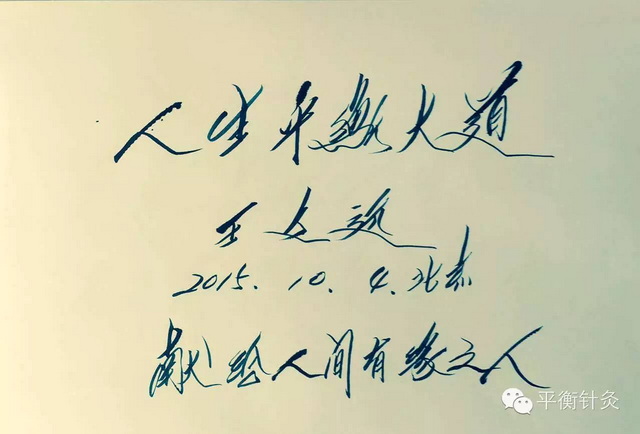 人生平衡大道
王文远
2015.10.4.北京
献给人间有缘之人
平衡针灸